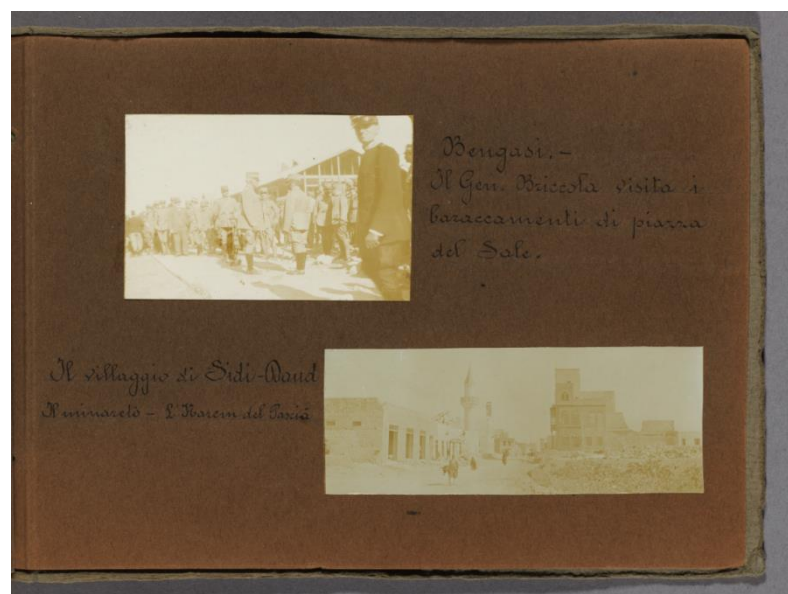 Bengasi.-
Il Gen. Briccola visita i
baraccamenti di piazza
del Sale.
Il villaggio di Sidi-Daud
Il minareto - L'Harem del Pascià